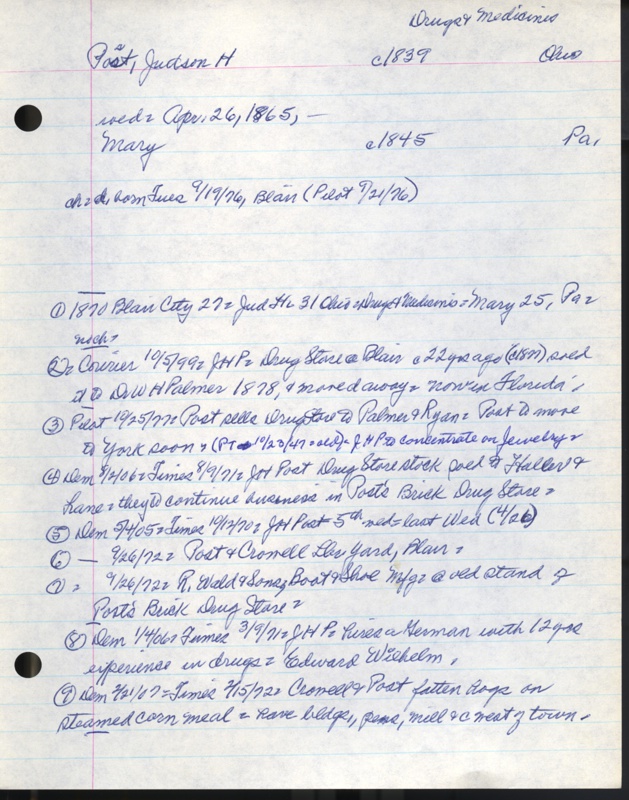 Drugs & Medicines
Post, Judson H c1839 Ohio
wed = Apr. 26, 1865, —
Mary c1845 Pa.
ch = d, born Tues 9/19/76, Blair (Pilot 9/21/76)
① 1870 Blair City 27 = Jud H. 31 Ohio = Drugs & Medicines = Mary 25, Pa =
noch =
② = Courier 10/5/99 = JHP = Drug Store @ Blair c 22 yrs ago (c1877) sold
it to Dr W H Palmer 1878, & moved away = "now in Florida".
③ Pilot 10/25/77 = Post sells Drug Store to Palmer & Ryan = Post to move
to York soon = (PT 10/23/47 = JHP to concentrate on Jewelry =
④ Dem 8/2/06 = Times 8/9/71 = JH Post Drug Store stock sold to Haller &
Lane = they to continue business in Post's Brick Drug Store =
⑤ Dem 5/4/05 = Times 10/12/70 = JH Post 5th wed = last Wed (4/26)
⑥ — 9/26/72 = Post & Crowell Lbr Yard, Blair =
⑦ = 9/26/72 = R. Weld & Sons, Boot & Shoe Mfg = @ old stand of
Post's Brick Drug Store =
⑧ Dem 1/4/06 = Times 3/9/71 = JHP = hires a German with 12 yrs
experience in drugs = Edward Wilhelm.
⑨ Dem 2/21/07 = Times 2/15/72 = Crowell & Post fatten hogs on
steamed corn meal = have bldgs, pens, mill &c west of town.